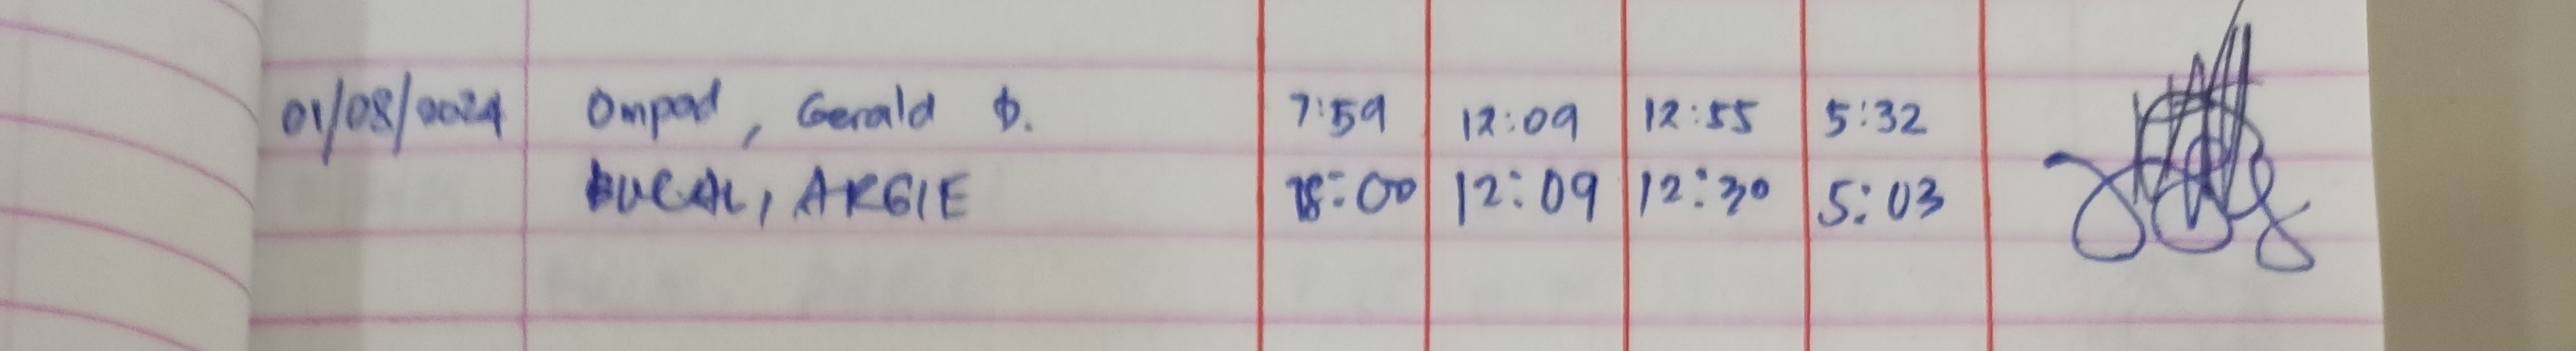 01/08/2024 Ompad, Gerald D. 7:59 12:09 12:55 5:32
BUCAL, ARGIE 8:00 12:09 12:30 5:03